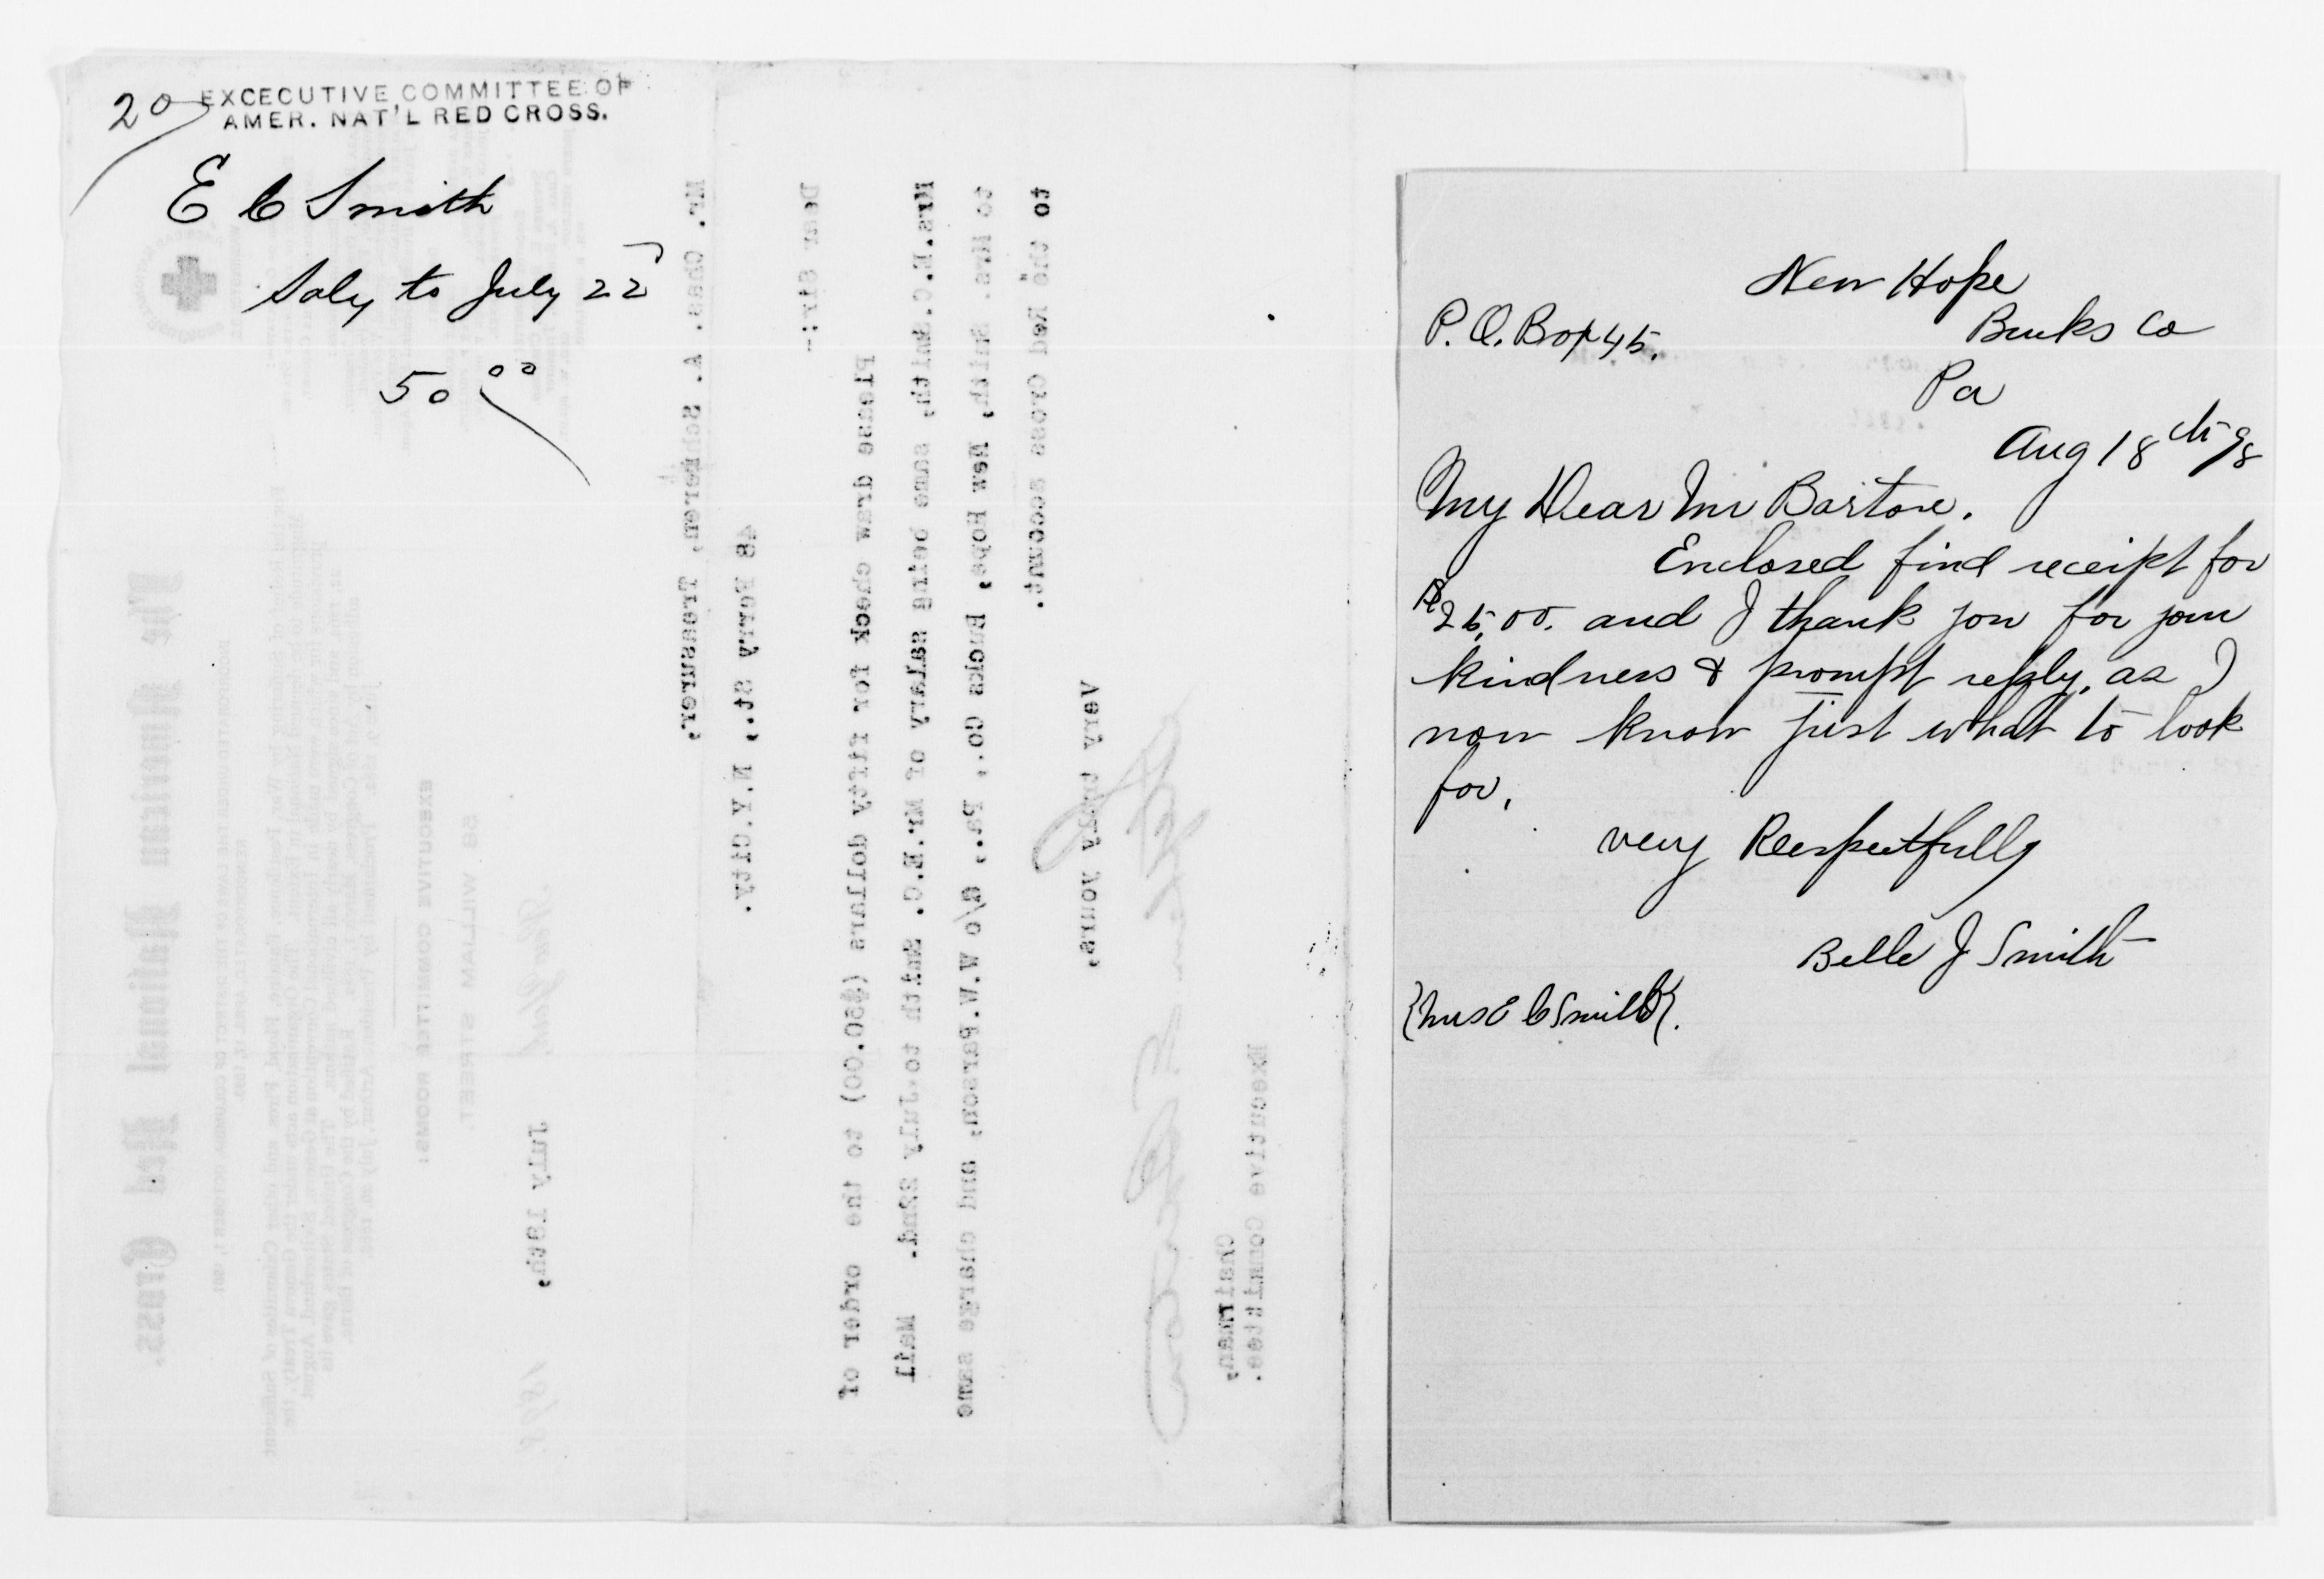 20
EXCECUTIVE COMMITTEE OF
AMER. NAT'L RED CROSS.
E C Smith
Saly to July 22
50 00
The American National Red Cross.
58 WILLIAM STREET.
EXECUTIVE COMMITTEE ROOMS:
July 19th, 1898
Mr. Chas. A. Schieren, Treasurer,
48 Ferry St., N.Y.City.
Dear Sir:-
Please draw check for fifty dollars ($50.00) to the order of
Mrs.E.C.Smith, same being salary of Mr.E.C. Smith to July 22nd. Mail
to Mrs. Smith, New Hope, Bucks Co., Pa., c/o W.W.Parson, and charge same
to the Red Cross account.
Very truly yours,
Chairman,
Executive Committee.
New Hope
P.O. Box 45. Bucks Co
Pa
Aug 18th 98
My Dear Mr Bartow.
Enclosed find receipt for
$25.00. and I thank you for your
kindness & prompt reply, as I
now know just what to look
for.
very Respectfully
Belle J Smith
{Mrs E C Smith}.